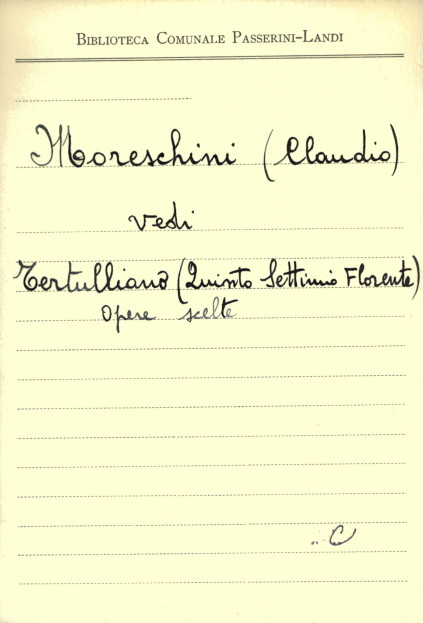 Biblioteca Comunale Passerini-Landi
Moreschini (Claudio)
vedi
Tertulliano (Quinto Settimio Florente)
Opere scelte
.. C